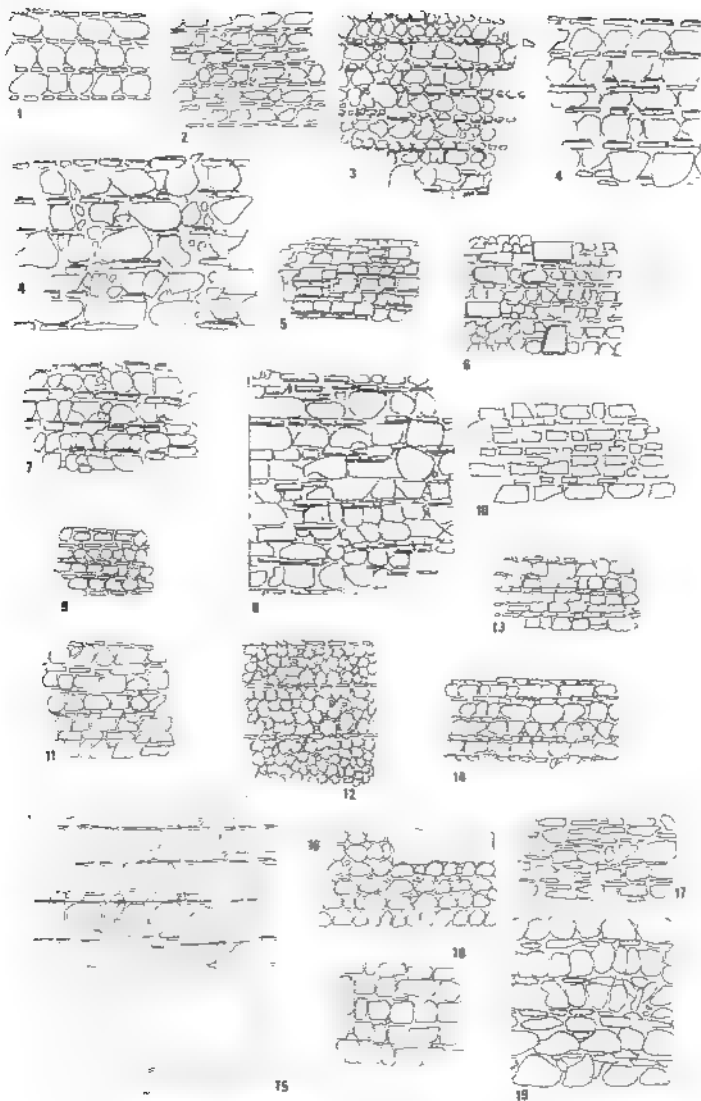 1
2
3
4
4
5
6
7
8
10
9
13
11
12
14
16
17
18
15
19